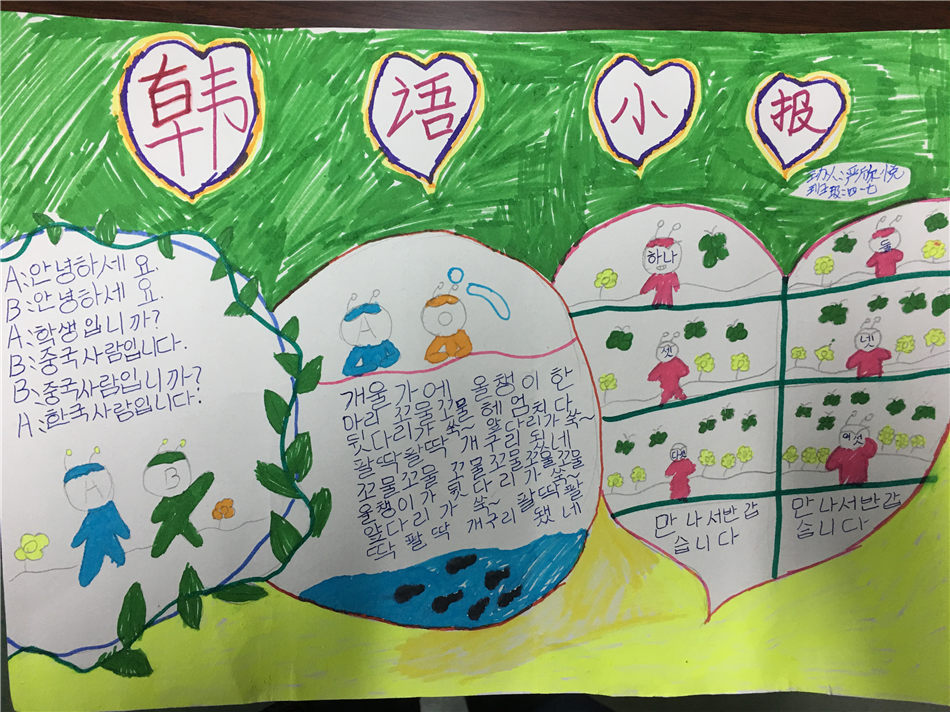 韩 语 小 报
班级:四一七
A:안녕하세 요.
B:안녕하세 요.
A:학생입니까?
B:중국사람입니다.
B:중국사람입니까?
A:한국사람입니다.
A
B
A
개울 가에 올챙이 한
마리 꼬물꼬물 헤 엄치 다
뒷다리가 쑥~ 앞다리가 쑥~
팔딱팔딱 개구리 됐네
꼬물꼬물 꼬물꼬물꼬물꼬물
올챙이가 뒷다리가 쑥~
앞다리 가 쑥~ 팔딱팔
딱 팔 딱 개구리 됐 네
하나
둘
셋
넷
다섯
여섯
만 나서반 갑
습 니 다
만 나서반갑
습 니 다